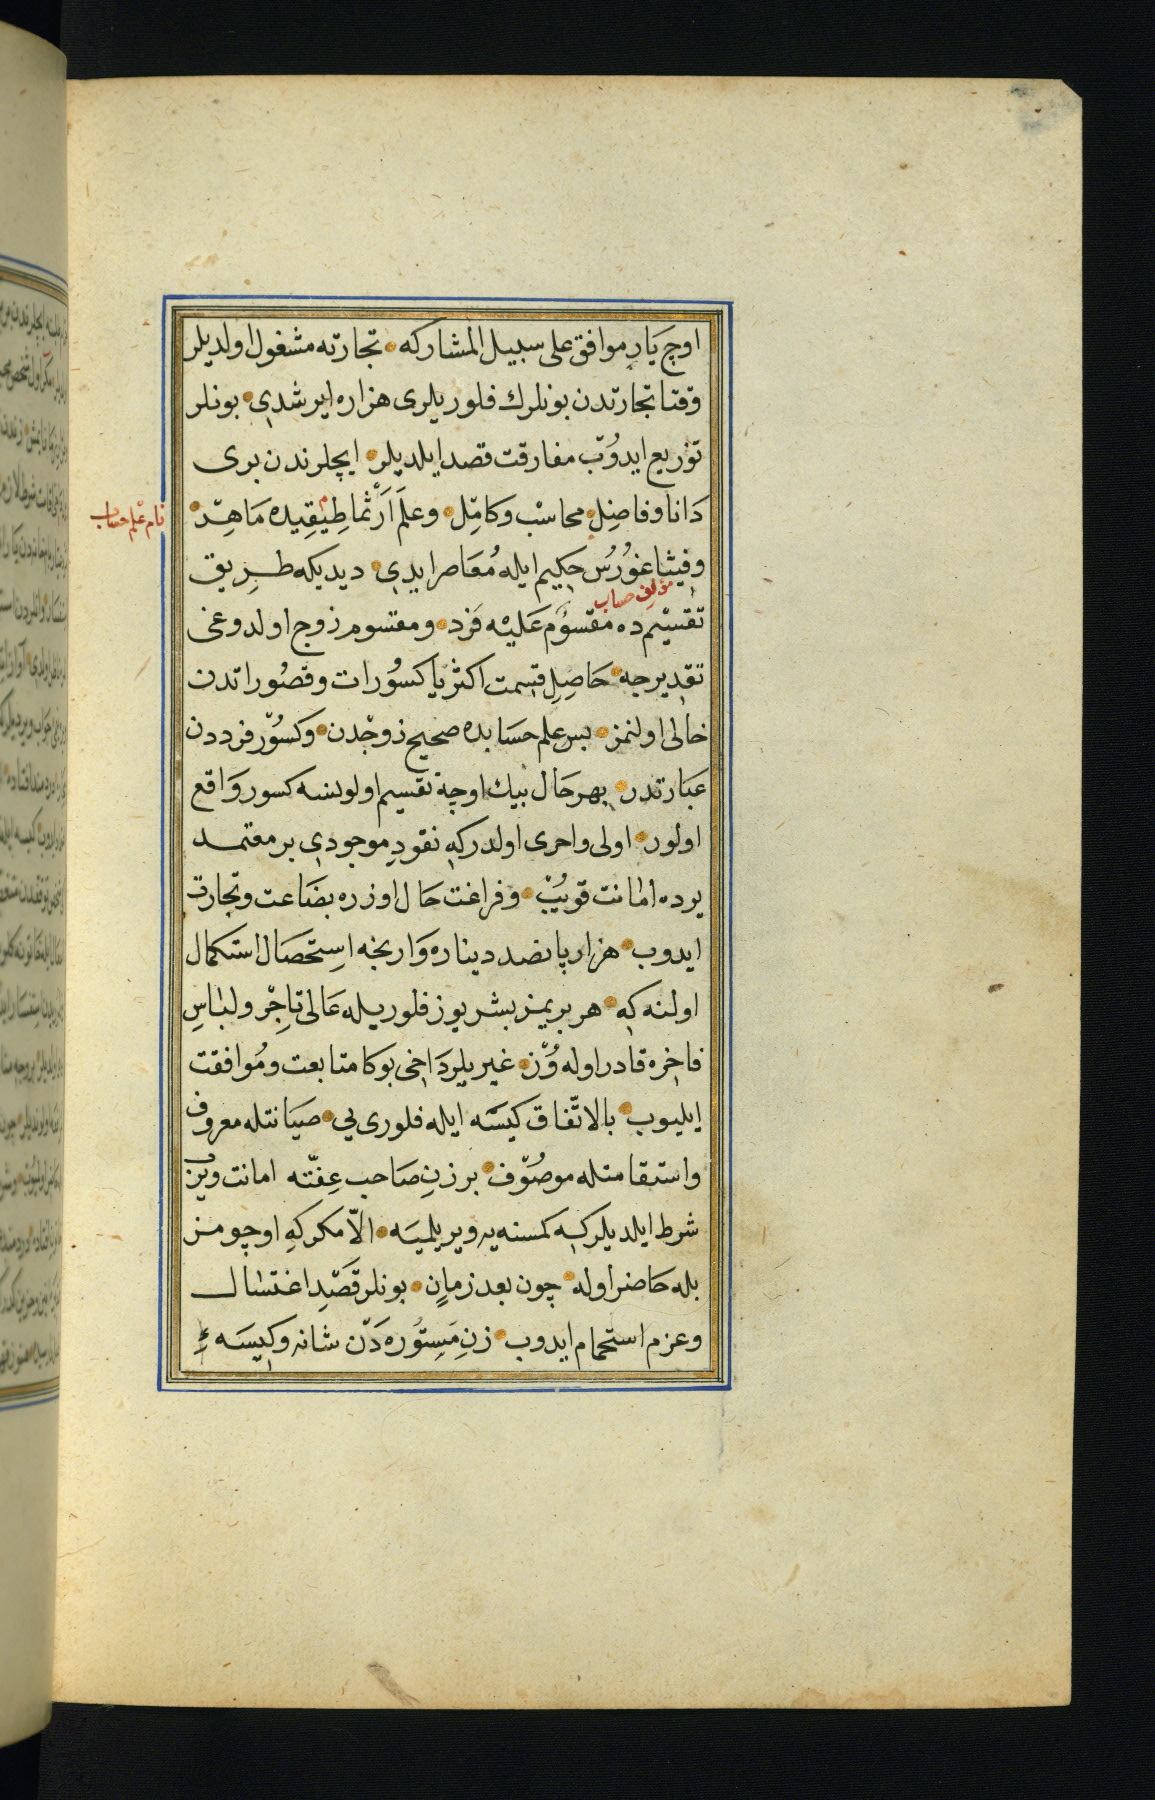 اوچ يَارِ موافق على سبيل المشاركه تجارته مشغول اولديلر
وقتا تجارتدن بونلرك فلوريلرى هزاره ايرشدى بونلر
توزيع ايدوب مفارقت قصد ايلديلر ايچلرندن برى
دَانا وفاضِل محاسب وكامِل وعلمَ اَرْثماطِيقِيده مَاهِر
نام علم حساب
وفيثاغورُس حكيم ايله مُعَاصر ايدى ديديكه طريق
مؤلف حساب
تقسيمده مقسوُم عَلَيْه فَرد ومقسوم زوج اولدوغى
تقديرجه حَاصِلِ قسمت اكثريا كسوُرات وقصوُراتدن
خالى اولنمز بس علم حسَابده صحيح زوجدن وكسوُر فرددن
عبَارتدر بهرحَال بيك اوچه تقسيم اولونسه كسور وَاقع
اولور اولى واحرى اولدركه نقودِ موجودى بر معتمد
يرده امانت قويُب وفراغت حَال اوزره بضَاعت وتجارت
ايدوب هزار پانصد ديناره وَارنجه اِستحصَال استكمال
اولنه كه هر بريمز بشر يوز فلوريله عَالى تاجر ولباسِ
فاخِره قادر اوله وُز غيريلر دَاخى بوكا متابعت ومُوافقت
ايليوب بالاتّفاق كيسَه ايله فلورى يى صيَانتله معروف
واستقامتله موصُوف بر زنِ صَاحب عِفّته امانت ويروب
شرط ايلديلر كه كمسنه يه ويريلميَه الاّ مكر كه اوچومز
بله حَاضر اوله چون بعد زمان بونلر قَصْدِ اغتسال
وعزم استحمام ايدوب زنِ مَستُوره دَن شانه وكيسَه